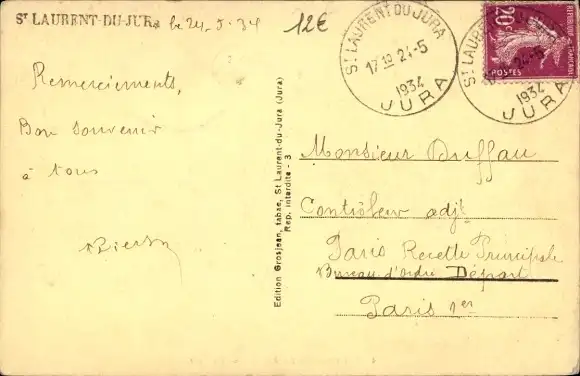 ST LAURENT-DU-JURA le 24-5-34
12€
Remerciements,
Bon souvenir
à tous
Edition Grosjean, tabac, St Laurent-du-Jura (Jura)
Rep. interdite - 3
ST LAURENT DU JURA
17 H 24-5
1934
JURA
20c
POSTES
24-5
1934
JURA
Monsieur Duffau
Contrôleur adjt
Paris Recette Principale
Bureau d'ordre Départ
Paris 1er